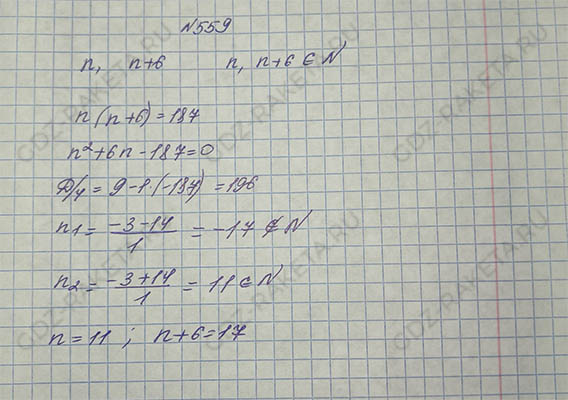 №559
n, n+6 n, n+6 ∈ N
n(n+6)=187
n²+6n-187=0
Д/4 = 9-1·(-187) = 196
n1 = (-3-14)/1 = -17 ∉ N
n2 = (-3+14)/1 = 11 ∈ N
n=11 ; n+6=17
GDZ-RAKETA.RU
GDZ-RAKETA.RU
GDZ-RAKETA.RU
GDZ-RAKETA.RU
GDZ-RAKETA.RU
GDZ-RAKETA.RU